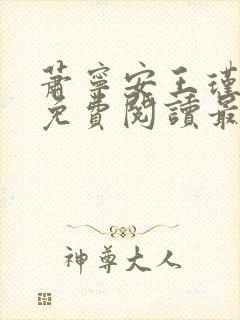 蕭寧安王瑾
免費閱讀最
神尊大人